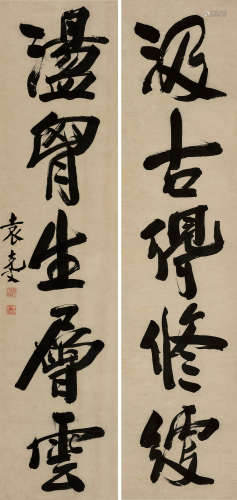 汲古得修綆
盪胷生層雲
袁克文